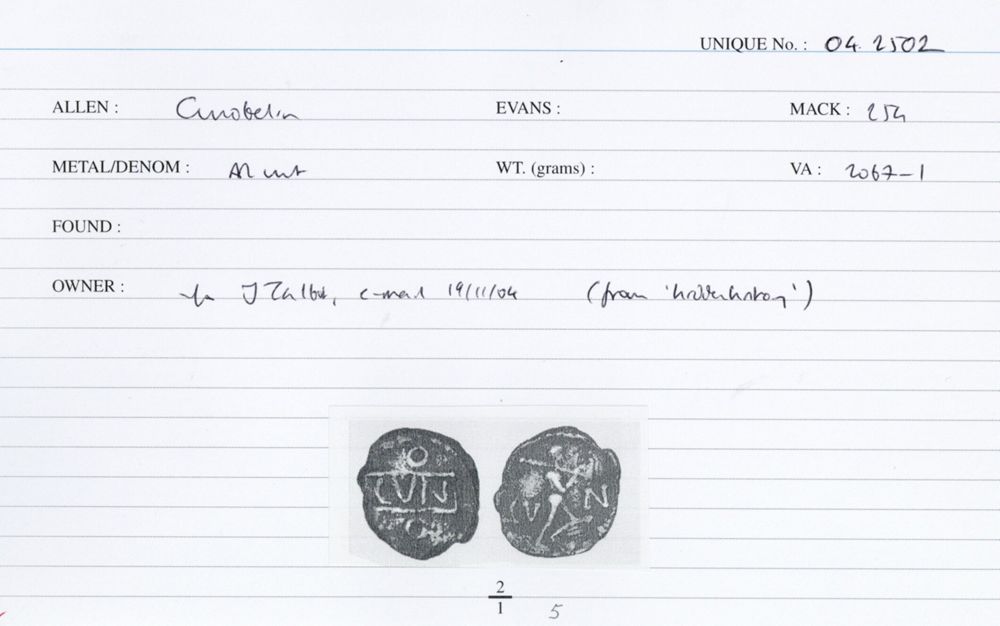 UNIQUE No. : 04. 2502
ALLEN : Cunobelin EVANS : MACK : 254
METAL/DENOM : AR unit WT. (grams) : VA : 2067-1
FOUND :
OWNER : J Talbot, e-mail 19/11/04 (from 'hiddenhistory')
CUN
CU N
2
1
5